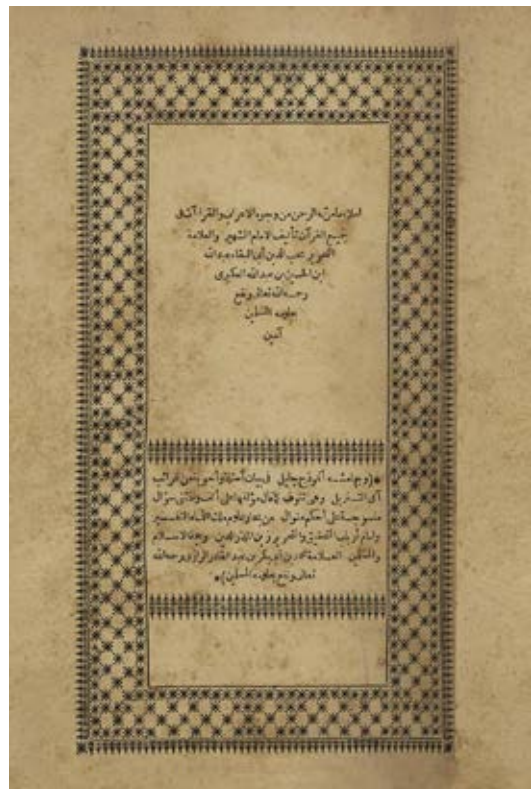 املاء مامن به الرحمن من وجوه الاعراب والقراآت فى
جميع القرآن تأليف الامام الشهير والعلامة
النحرير محب الدين أبى البقاء عبد الله
ابن الحسين بن عبد الله العكبرى
رحمه الله تعالى ونفع
بعلومه المسلمين
آمين
*(وبهامشه أنموذج جليل فى بيان أسئلة وأجوبة من غرائب
آى التنزيل وهى تنوف كما قال مؤلفها على ألف ومائتى سؤال
منسوجة على أحكم منوال من
وامام أرباب التحقيق والتحرير زين الملة والدين الاسلام
والمسلمين العلامة محمد بن أبى بكر بن عبد القادر الرازى رحمه الله
تعالى ونفع بعلومه المسلمين)*